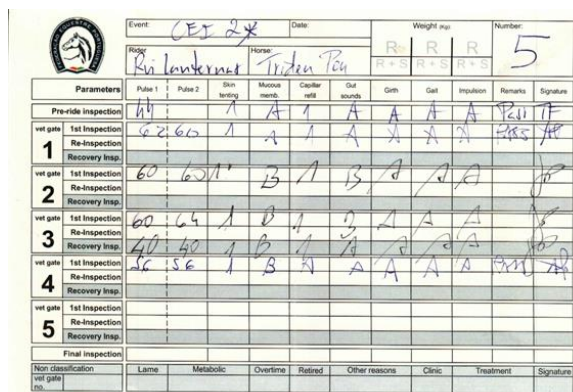 Event: CEI 2* Date: Weight (Kg) Number: 5
R R R
Rider Horse: R+S R+S R+S
Parameters Pulse 1 Pulse 2 Skin tenting Mucous memb. Capillar refill Gut sounds Girth Gait Impulsion Remarks Signature
Pre-ride inspection 44 1 A 1 A A A A Pass
vet gate 1 1st Inspection 62 60 1 A 1 A A A A Pass
Re-Inspection
Recovery Insp.
vet gate 2 1st Inspection 60 60 1 B 1 B A A A
Re-Inspection
Recovery Insp.
vet gate 3 1st Inspection 60 64 1 B 1 B A A A
Re-Inspection
Recovery Insp. 40 40 1 B 1 A A A A
vet gate 4 1st Inspection 56 56 1 B A A A A A
Re-Inspection
Recovery Insp.
vet gate 5 1st Inspection
Re-Inspection
Recovery Insp.
Final inspection
Non classification Lame Metabolic Overtime Retired Other reasons Clinic Treatment Signature
vet gate no.